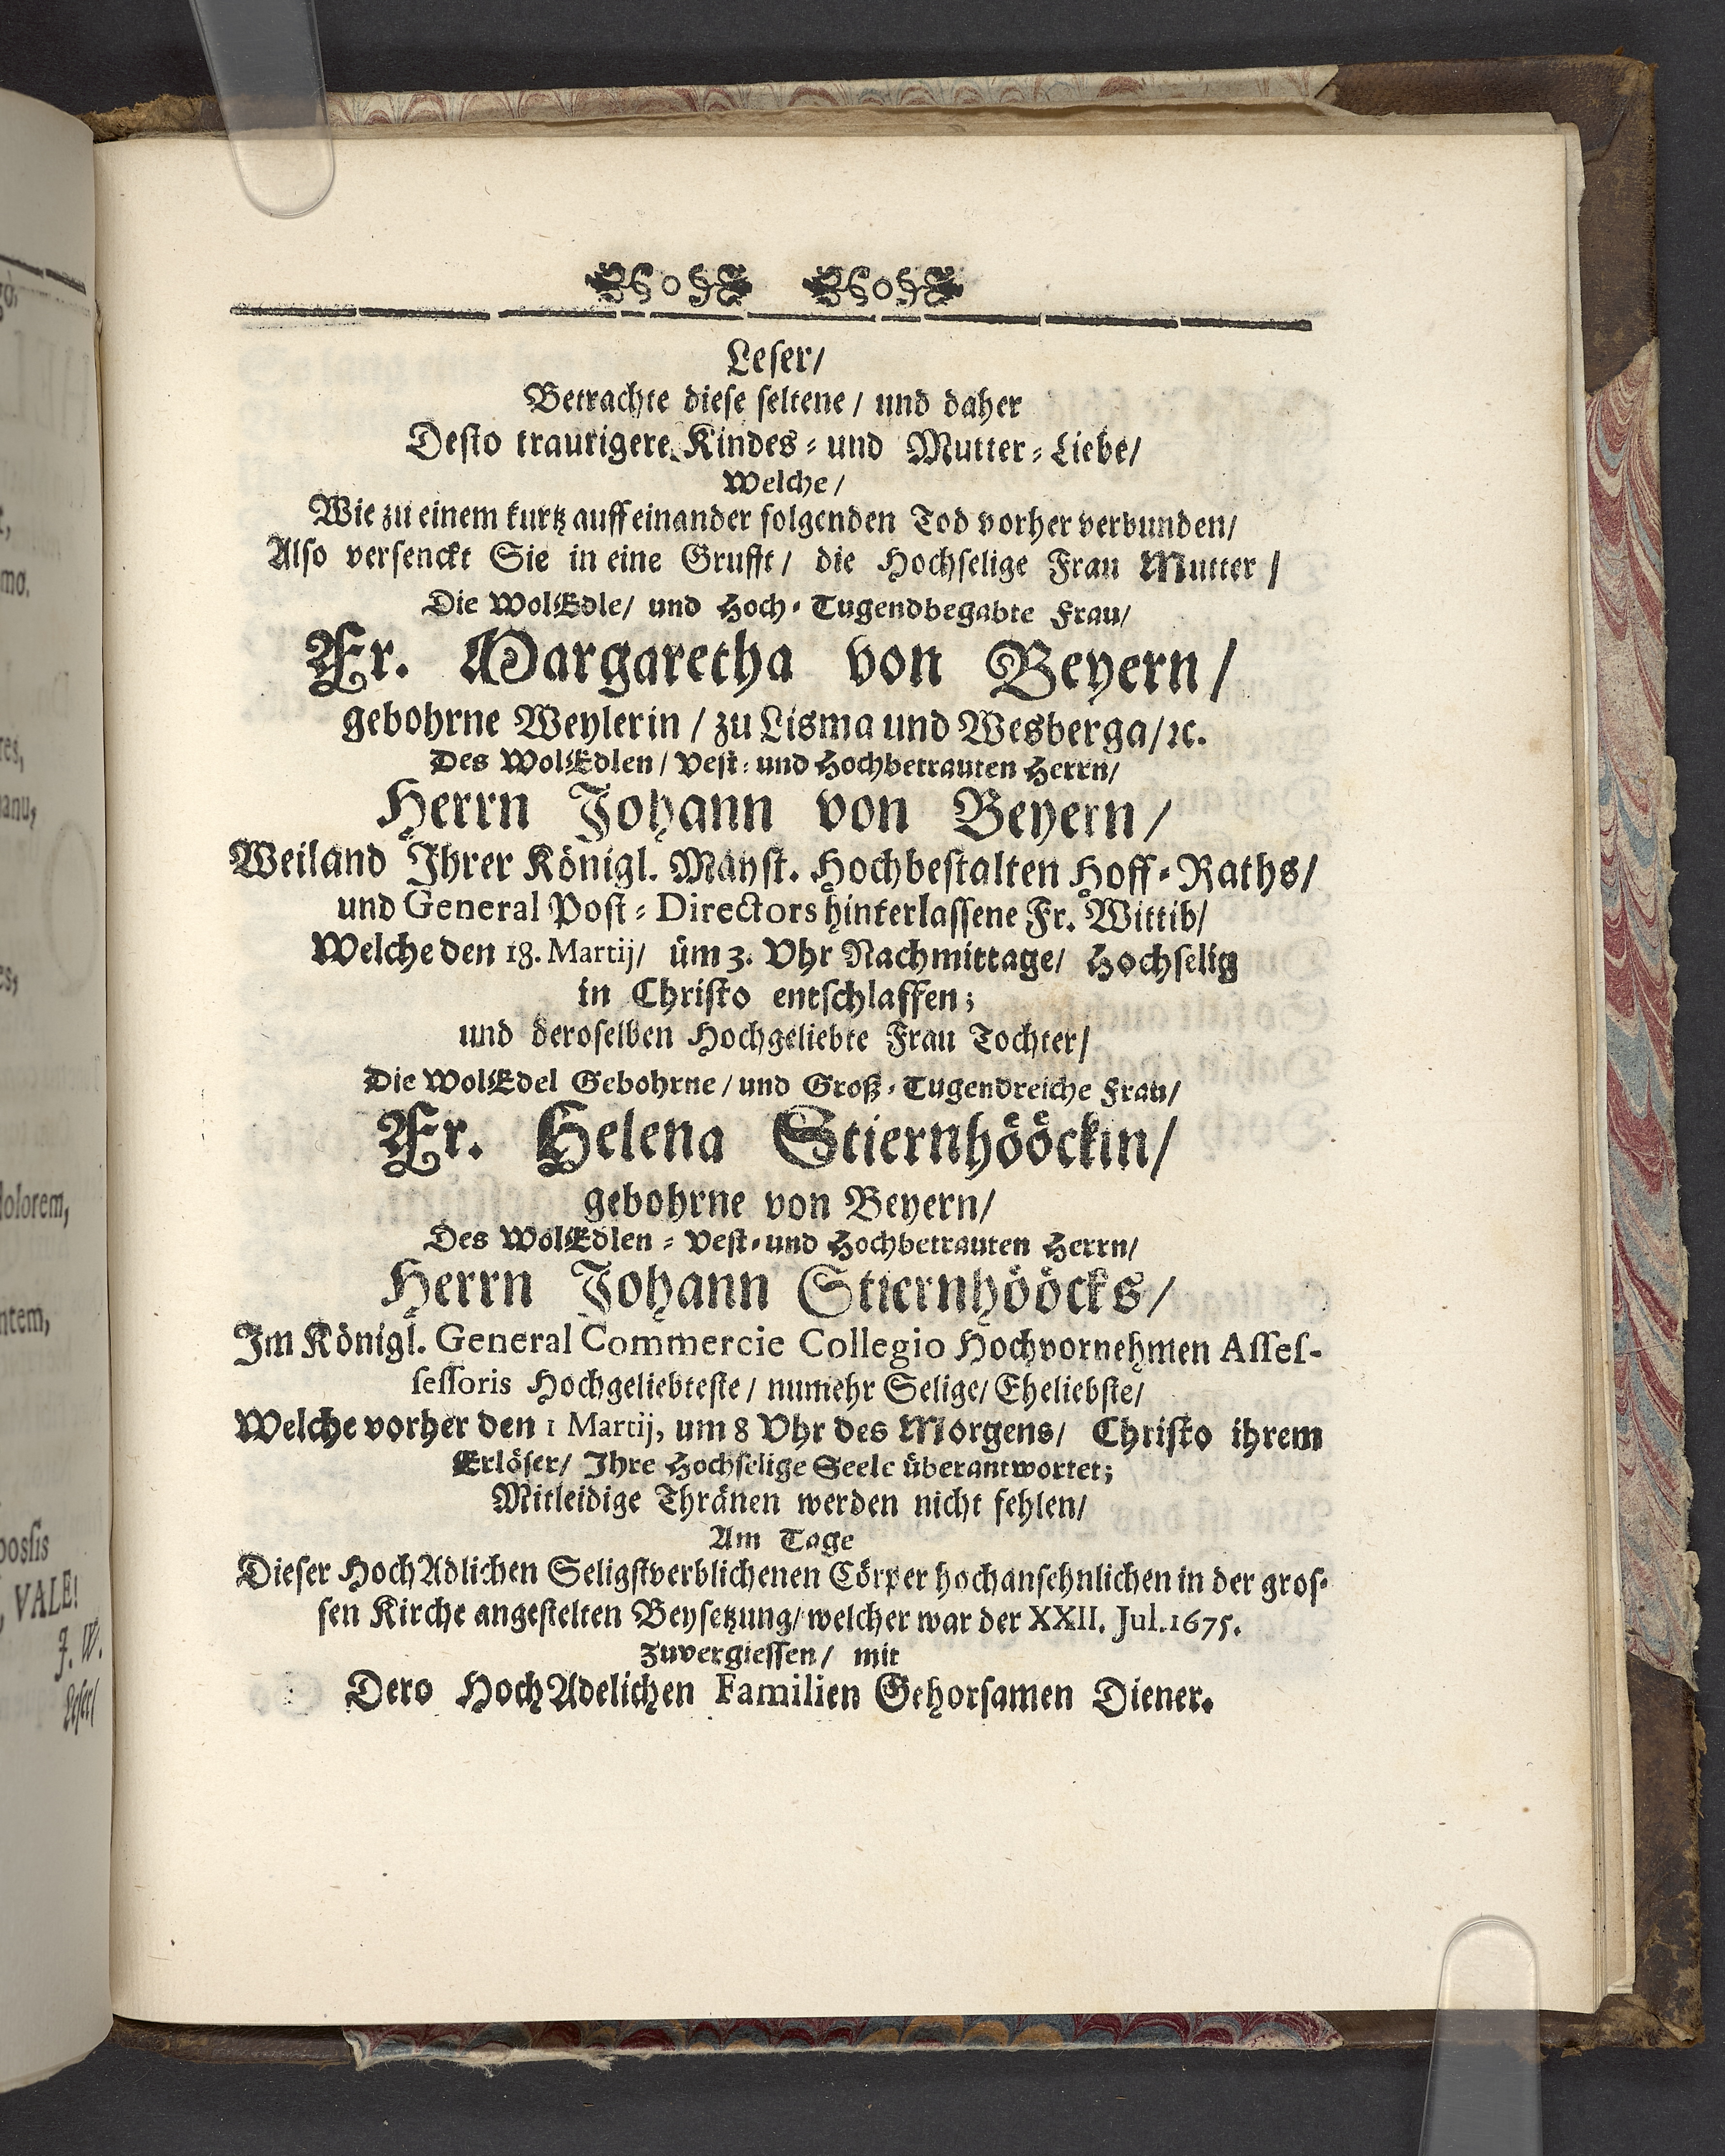 Leser/
Betrachte diese seltene/ und daher
Desto traurigere Kindes- und Mutter-Liebe/
Welche/
Wie zu einem kurtz auff einander folgenden Tod vorher verbunden/
Also versenckt Sie in eine Grufft/ die Hochselige Frau Mutter/
Die WolEdle/ und Hoch-Tugendbegabte Frau/
Fr. Margaretha von Beyern/
gebohrne Weylerin/ zu Lisma und Wesberga/ ꝛc.
Des WolEdlen/ Vest- und Hochbetrauten Herrn/
Herrn Johann von Beyern/
Weiland Ihrer Königl. Mäyst. Hochbestalten Hoff-Raths/
und General Post-Directors hinterlassene Fr. Wittib/
Welche den 18. Martij/ üm 3. Vhr Nachmittage/ Hochselig
in Christo entschlaffen;
und deroselben Hochgeliebte Frau Tochter/
Die WolEdel Gebohrne/ und Groß-Tugendreiche Frau/
Fr. Helena Stiernhööckin/
gebohrne von Beyern/
Des WolEdlen-Vest-und Hochbetrauten Herrn/
Herrn Johann Stiernhööcks/
Im Königl. General Commercie Collegio Hochvornehmen Asses-
sessoris Hochgeliebteste/ numehr Selige/ Eheliebste/
Welche vorher den 1 Martij, um 8 Vhr des Morgens/ Christo ihrem
Erlöser/ Ihre Hochselige Seele überantwortet;
Mitleidige Thränen werden nicht fehlen/
Am Tage
Dieser HochAdlichen Seligstverblichenen Cörper hochansehnlichen in der gros-
sen Kirche angestelten Beysetzung/ welcher war der XXII. Jul. 1675.
Zuvergiessen/ mit
Dero HochAdelichen Familien Gehorsamen Diener.
dolorem,
VALE!
J. W.
Leser/